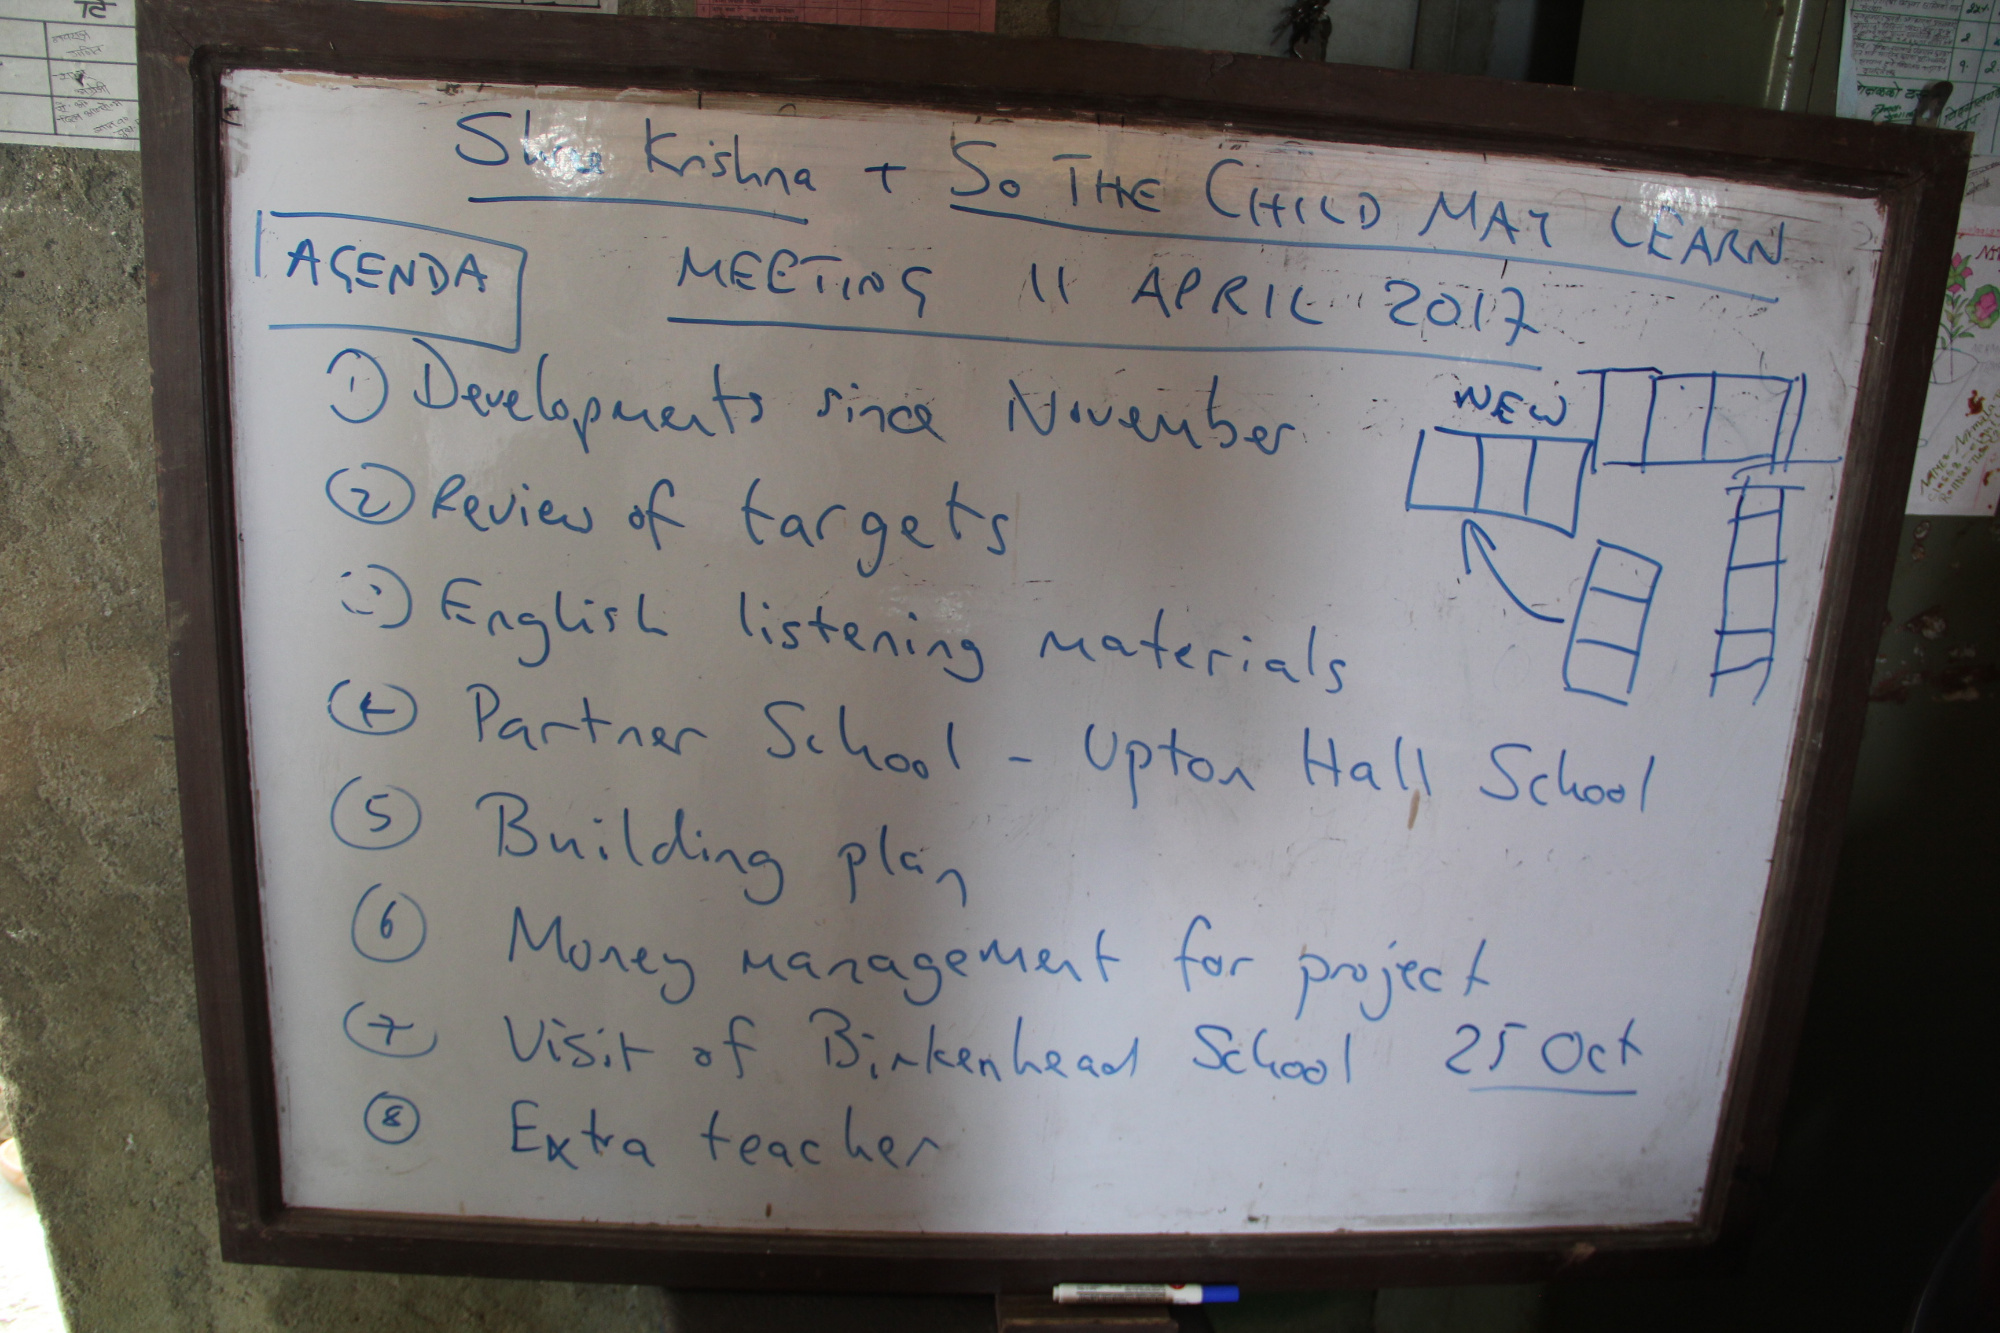 Shree Krishna + SO THE CHILD MAY LEARN
AGENDA MEETING 11 APRIL 2017
1 Developments since November
NEW
2 Review of targets
3 English listening materials
4 Partner School - Upton Hall School
5 Building plan
6 Money management for project
7 Visit of Birkenhead School 25 Oct
8 Extra teacher